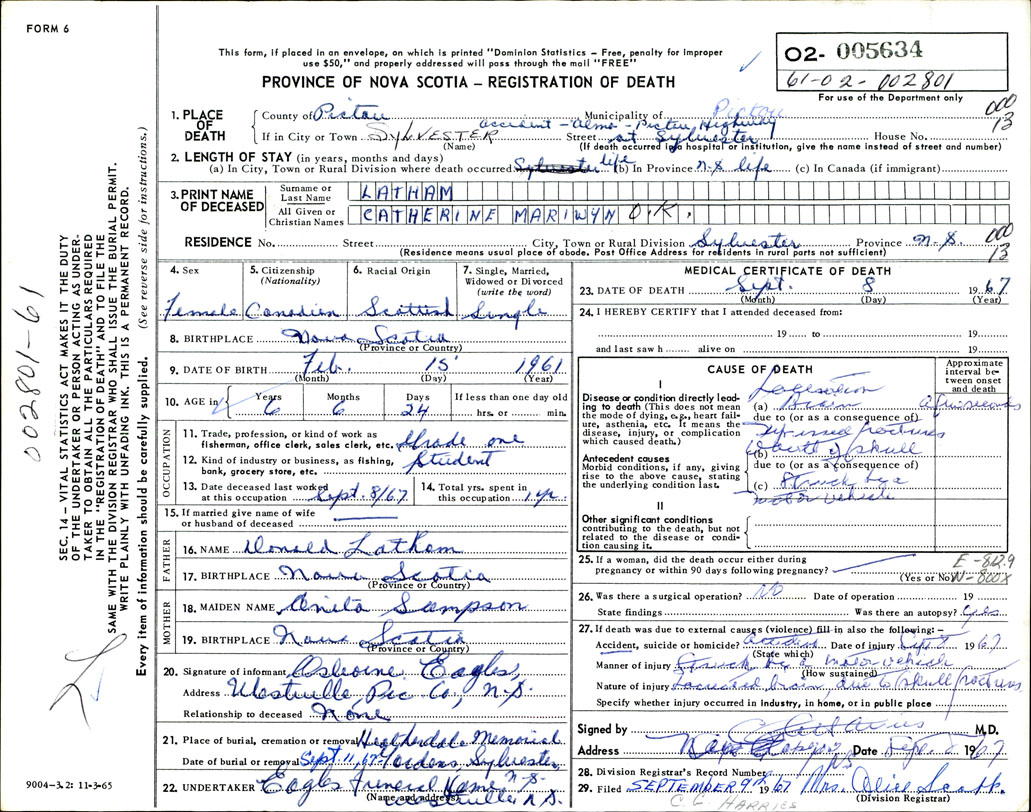 FORM 6
This form, if placed in an envelope, on which is printed "Dominion Statistics – Free, penalty for improper
use $50," and properly addressed will pass through the mail "FREE"
O2- 005634
61-02-002801
For use of the Department only
PROVINCE OF NOVA SCOTIA – REGISTRATION OF DEATH
1. PLACE OF DEATH
County of Pictou Municipality of Pictou
accident - Alma - Pictou Highway
If in City or Town SYLVESTER Street at Sylvester House No.
(Name) (If death occurred in a hospital or institution, give the name instead of street and number)
000
13
2. LENGTH OF STAY (in years, months and days)
(a) In City, Town or Rural Division where death occurred Sylvester life (b) In Province N.S life (c) In Canada (if immigrant)
3. PRINT NAME OF DECEASED
Surname or Last Name LATHAM
All Given or Christian Names CATHERINE MARIWYN O.K.
RESIDENCE No. Street City, Town or Rural Division Sylvester Province N.S.
(Residence means usual place of abode. Post Office Address for residents in rural parts not sufficient)
000
13
4. Sex Female
5. Citizenship (Nationality) Canadian
6. Racial Origin Scottish
7. Single, Married, Widowed or Divorced (write the word) Single
8. BIRTHPLACE Nova Scotia
(Province or Country)
9. DATE OF BIRTH Feb. 15 1961
(Month) (Day) (Year)
10. AGE in Years 6 Months 6 Days 24 If less than one day old hrs. or min.
OCCUPATION
11. Trade, profession, or kind of work as
fisherman, office clerk, sales clerk, etc. Grade one
12. Kind of industry or business, as fishing,
bank, grocery store, etc. Student
13. Date deceased last worked
at this occupation Sept. 8/67
14. Total yrs. spent in
this occupation 1 yr.
15. If married give name of wife
or husband of deceased
FATHER
16. NAME Donald Latham
17. BIRTHPLACE Nova Scotia
(Province or Country)
MOTHER
18. MAIDEN NAME Anita Sampson
19. BIRTHPLACE Nova Scotia
(Province or Country)
20. Signature of informant Osborne Eagles,
Address Westville, Pic Co, N.S.
Relationship to deceased None
21. Place of burial, cremation or removal Heatherdale Memorial
Date of burial or removal Sept. 11, 67 Gardens, Sylvester,
N.S.
22. UNDERTAKER Eagles Funeral Home
(Name and address) Westville N.S.
MEDICAL CERTIFICATE OF DEATH
23. DATE OF DEATH Sept. 8 1967
(Month) (Day) (Year)
24. I HEREBY CERTIFY that I attended deceased from:
19 to 19
and last saw h alive on 19
CAUSE OF DEATH
Approximate interval between onset and death
I
Disease or condition directly leading to death (This does not mean the mode of dying, e.g., heart failure, asthenia, etc. It means the disease, injury, or complication which caused death.)
Laceration
(a) Brain
due to (or as a consequence of)
fractures
(b) of skull
due to (or as a consequence of)
(c) Struck by a
motor vehicle
Antecedent causes
Morbid conditions, if any, giving rise to the above cause, stating the underlying condition last.
II
Other significant conditions
contributing to the death, but not related to the disease or condition causing it.
25. If a woman, did the death occur either during
pregnancy or within 90 days following pregnancy?
(Yes or No)
E-812.9
N-800X
26. Was there a surgical operation? No Date of operation 19
State findings Was there an autopsy? Yes
27. If death was due to external causes (violence) fill in also the following: –
Accident, suicide or homicide? Accident Date of injury Sept 8 1967
(State which)
Manner of injury Struck by a motor vehicle
(How sustained)
Nature of injury Lacerated brain due to skull fractures
Specify whether injury occurred in industry, in home, or in public place
Signed by M.D.
Address Date Sept. 1967
28. Division Registrar's Record Number
29. Filed SEPTEMBER 9th 1967 Mrs. Alice Scott.
(Division Registrar)
C.C. HARRIES
SEC. 14 – VITAL STATISTICS ACT MAKES IT THE DUTY
OF THE UNDERTAKER OR PERSON ACTING AS UNDER-
TAKER TO OBTAIN ALL THE PARTICULARS REQUIRED
IN THE "REGISTRATION OF DEATH" AND TO FILE THE
SAME WITH THE DIVISION REGISTRAR WHO SHALL ISSUE THE BURIAL PERMIT.
WRITE PLAINLY WITH UNFADING INK. THIS IS A PERMANENT RECORD.
Every item of information should be carefully supplied. (See reverse side for instructions.)
002801-61
9004-3.2: 11-3-65